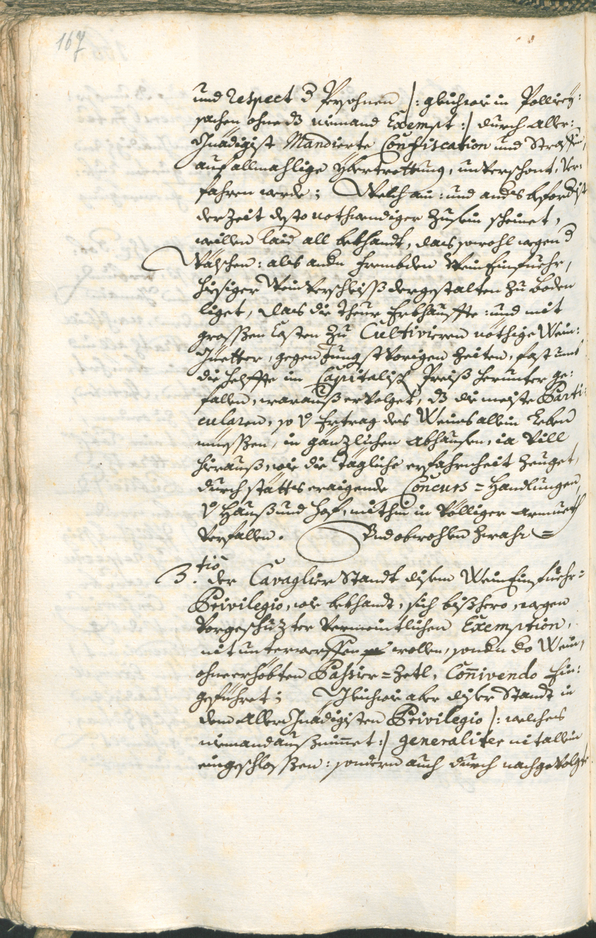 167
und respect d Persohnen |: gleichwie in Pollicey-
sachen ohne ds niemand Exempt :| durch aller-
gnädigist Mandierte Confiscation und Straffe,
auf allmahlige Ybertrettung, unverschont, ver-
fahren werde; Welch ain: und anders
der Zeit desto nothwendiger zusein scheinet,
weillen laid all bekhandt, dass sowohl wegen d
Wälschen: als anden frembden Wein Einfuehr,
hiesiger Wein Verschleiß dergestalten zu boden
liget, dass die theur erkhauffte: und mit
grossßen Cossten zu Cultivieren nöthige Wein-
güetter, gegen jüngst vorigen Zeiten, fast umb
die helffte im Capitalisch Preiß herunter ge-
fallen, warauß ervolget, ds die meiste Parti-
cularen, so v Ertrag des Weins allein Leben
muessßen, in gänzlichen abhausen, ia vill
hierauß, wie die Tägliche erfahrenheit zeuget,
durch stätts eraigende Concurs-Handlungen
v Hauß und hof, mithin in völliger armueth
verfallen. Und obwohlen zwahr =
3.tio der Cavaglier Standt disem Wein Einfuhr-
Privilegio, wie bekhandt, sich bißhero, wegen
vorgeschuzter vermeintlichen Exemption,
nit unterwerffen wollen, sonden do Wein,
ohne erhöbten Passier-Zetl, Conivendo Ein-
geführet; Gleichwie aber diser Standt in
dem Allergnädigisten Privilegio |: welches
niemand außnimmet :| generaliter nit allein
eingeschlossßen: sondern auch durch nachgevolgt